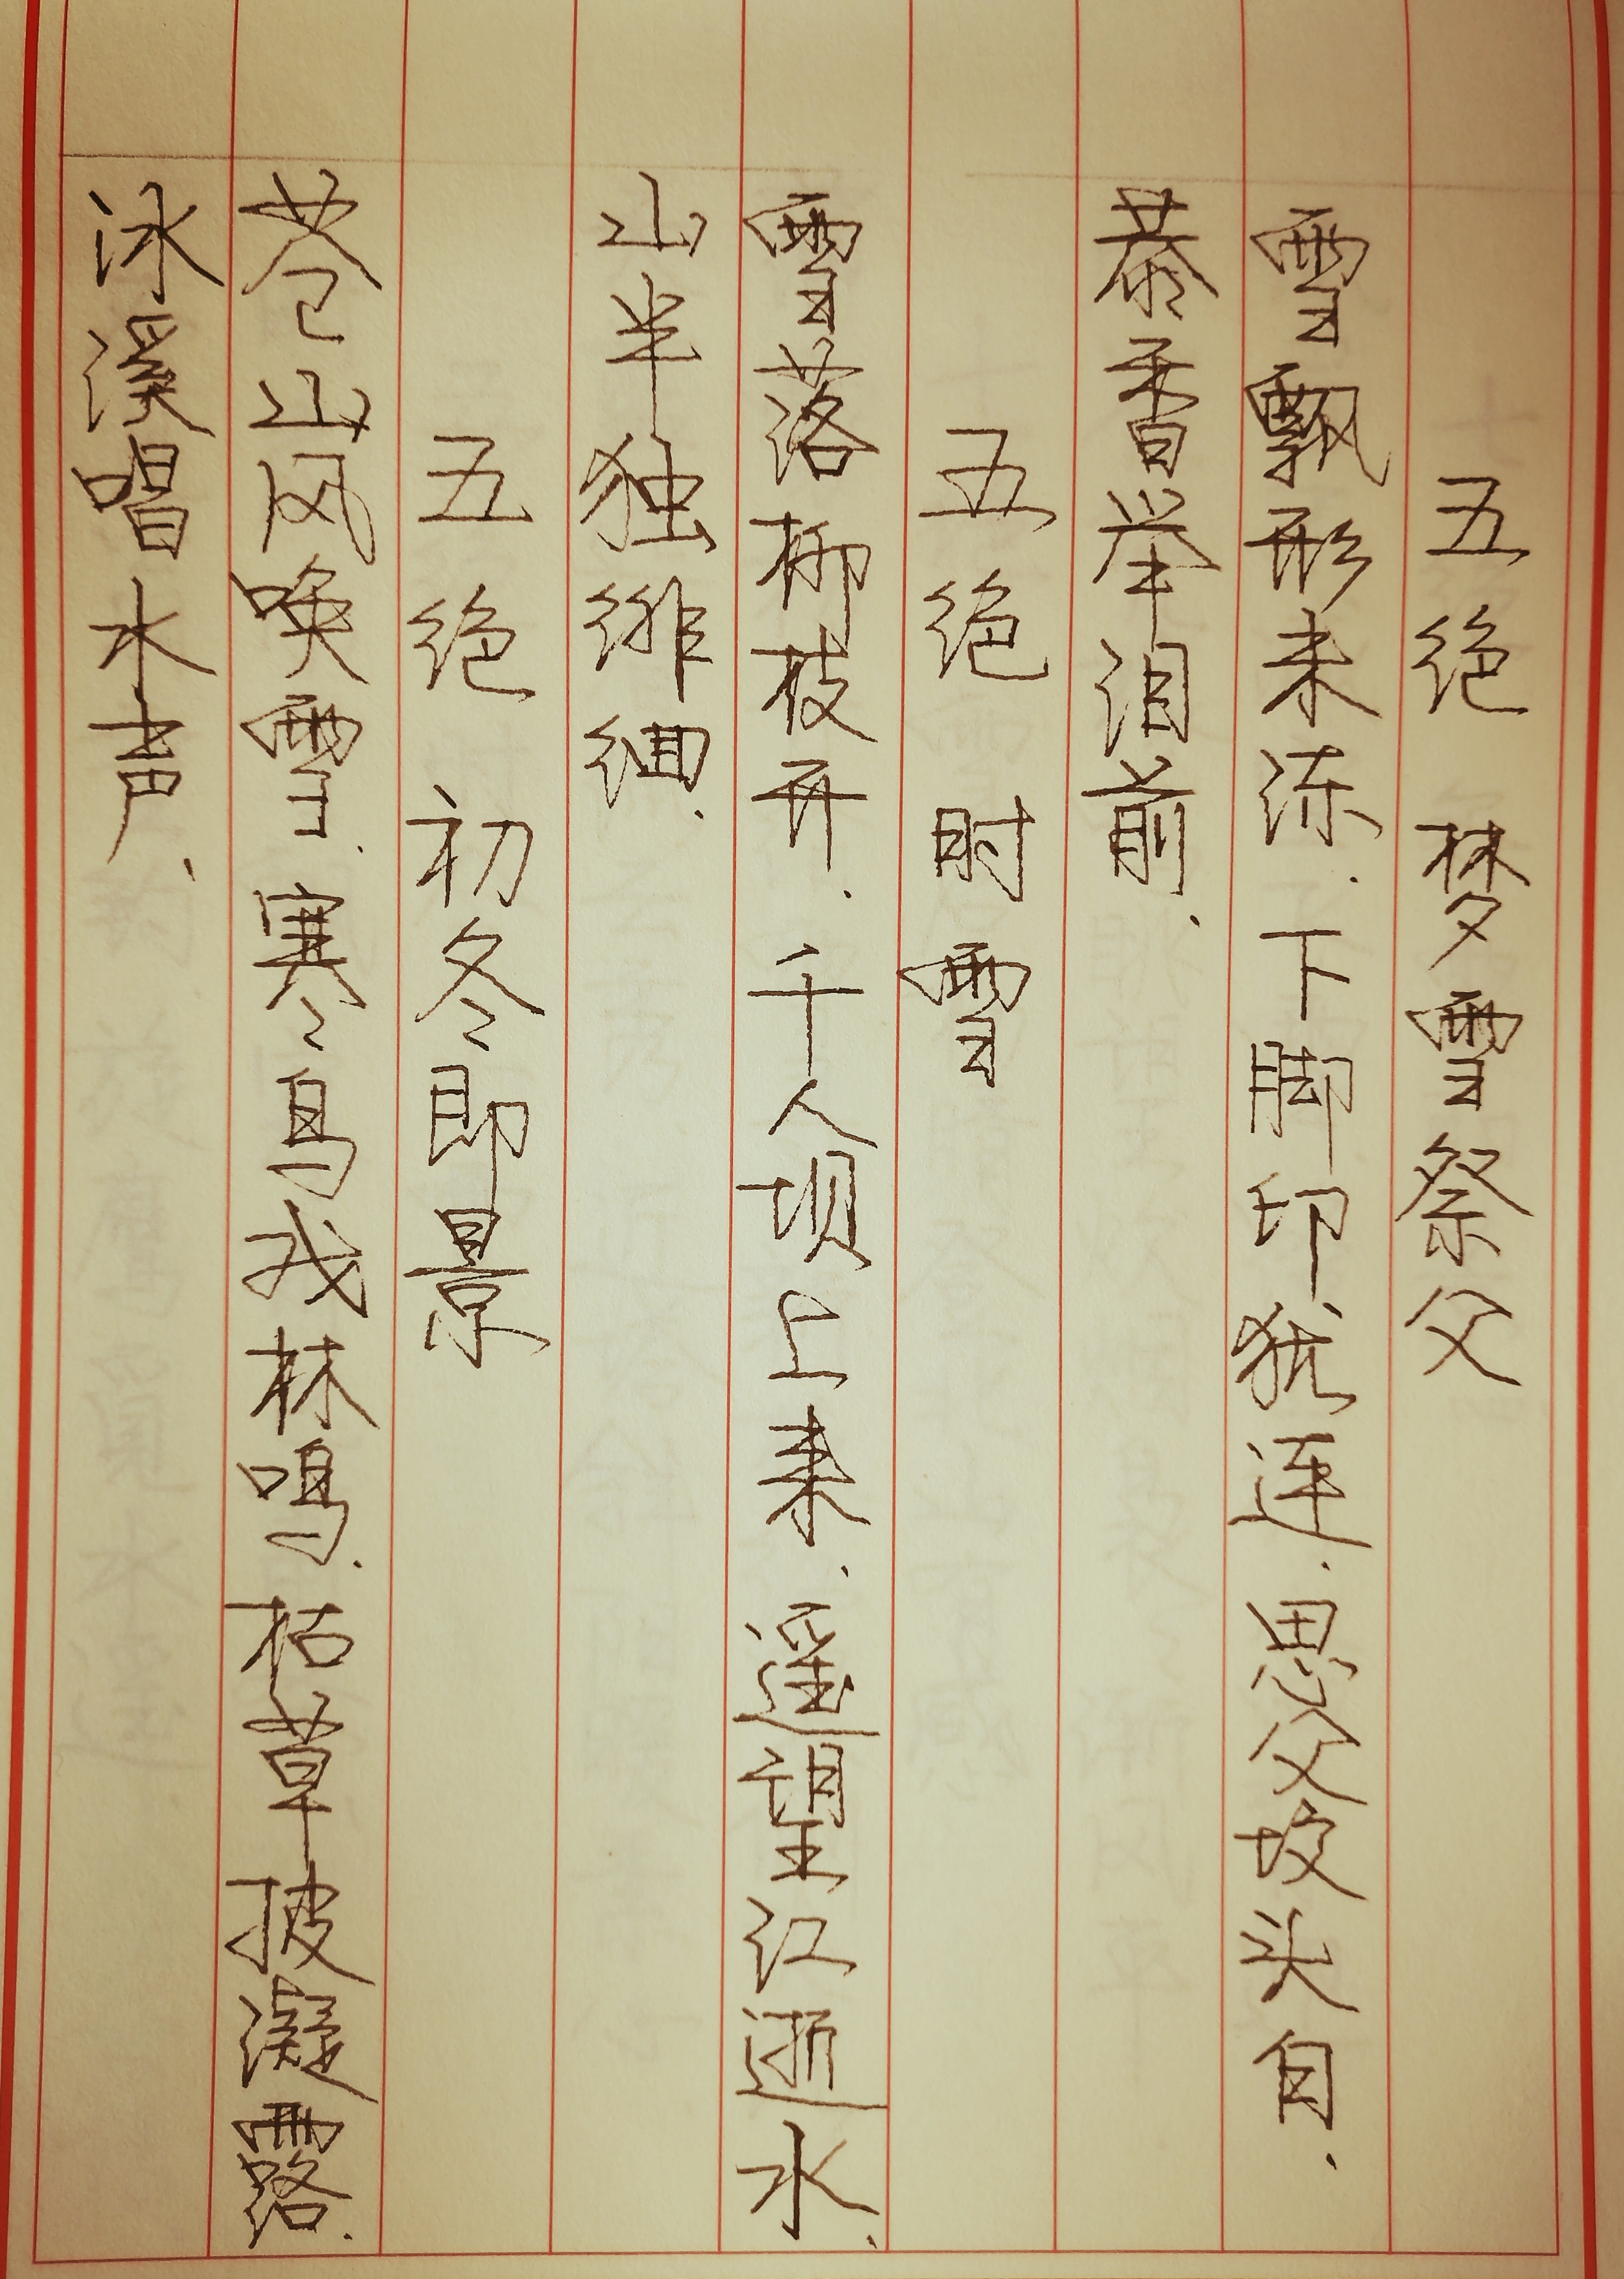 五绝 梦雪祭父
雪飘形未冻.下脚印犹连.思父坟头白.
恭香举泪前.
五绝 时雪
雪落柳枝开.千人坝上来.遥望江逝水.
山半独徘徊.
五绝 初冬即景
苍山风唤雪.寒鸟戏林鸣.枯草披凝露.
冰溪唱水声.